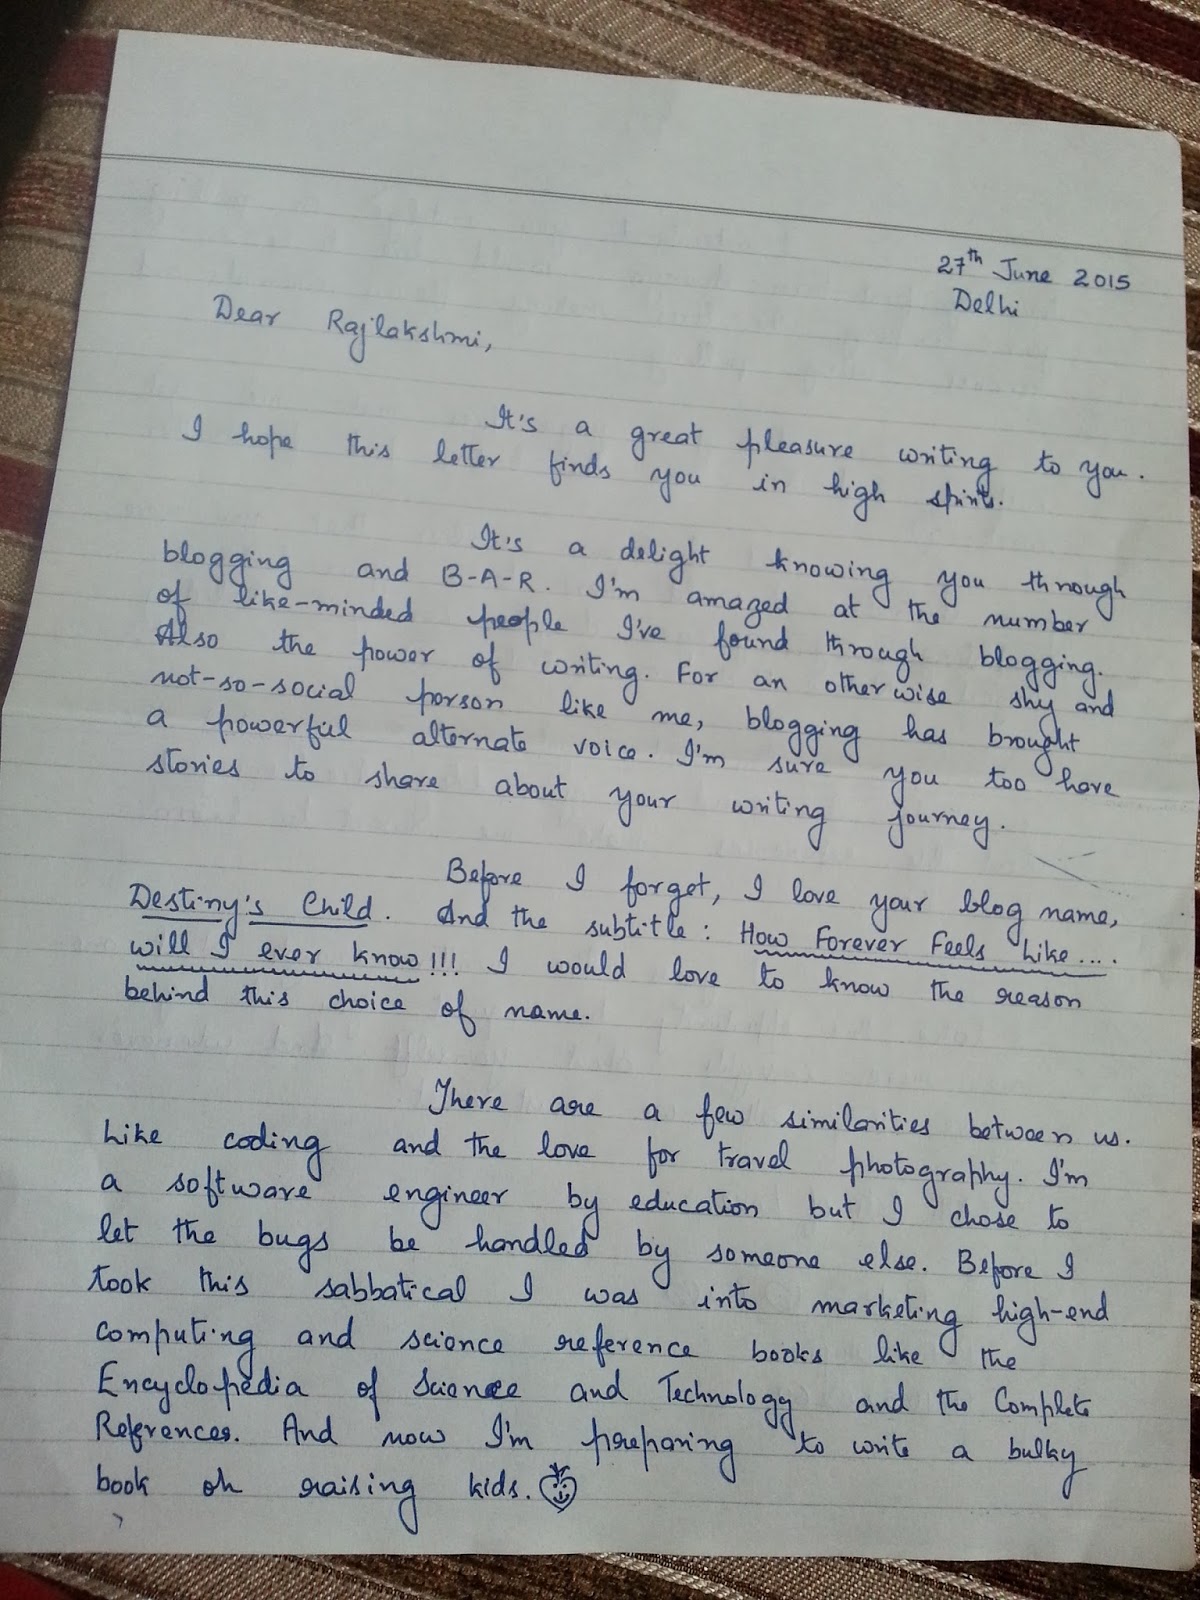 27th June 2015
Delhi
Dear Rajlakshmi,
It's a great pleasure writing to you.
I hope this letter finds you in high spirits.
It's a delight knowing you through
blogging and B-A-R. I'm amazed at the number
of like-minded people I've found through blogging.
Also the power of writing. For an otherwise shy and
not-so-social person like me, blogging has brought
a powerful alternate voice. I'm sure you too have
stories to share about your writing journey.
Before I forget, I love your blog name,
Destiny's Child. And the subtitle: How Forever Feels Like....
will I ever know!!! I would love to know the reason
behind this choice of name.
There are a few similarities between us.
Like coding and the love for travel photography. I'm
a software engineer by education but I chose to
let the bugs be handled by someone else. Before I
took this sabbatical I was into marketing high-end
computing and science reference books like the
Encyclopedia of Science and Technology and the Complete
References. And now I'm preparing to write a bulky
book on raising kids.